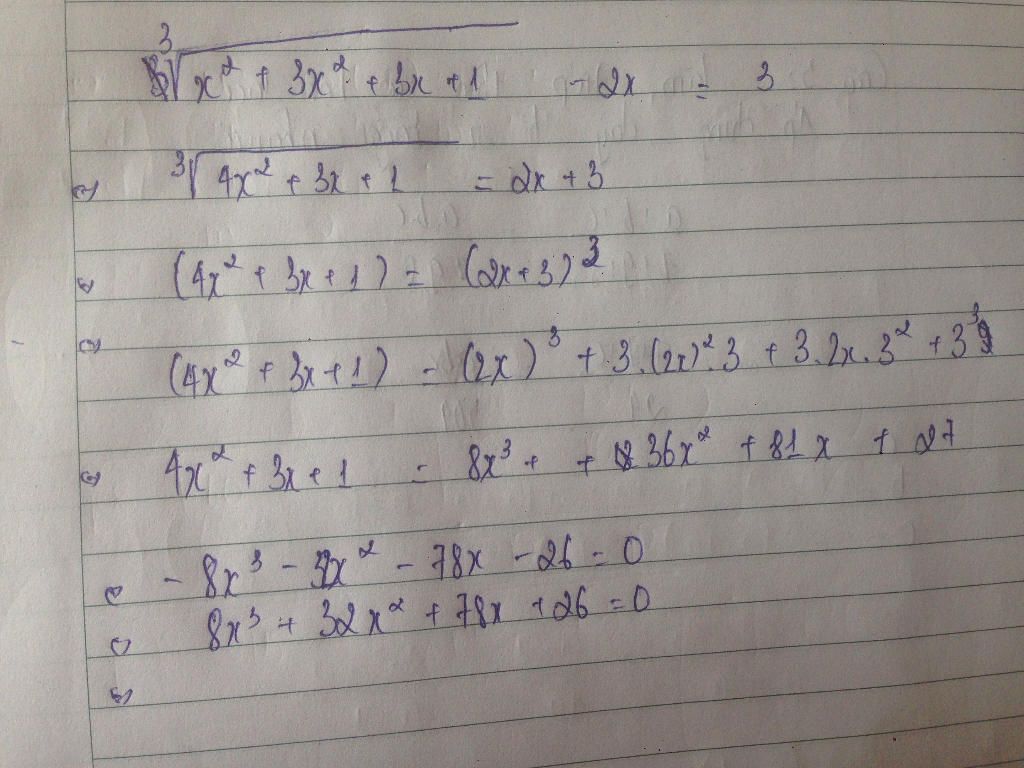 ∛(x² + 3x² + 3x + 1) - 2x = 3
⇔ ∛(4x² + 3x + 1) = 2x + 3
⇔ (4x² + 3x + 1) = (2x + 3)³
⇔ (4x² + 3x + 1) = (2x)³ + 3.(2x)².3 + 3.2x.3² + 3³
⇔ 4x² + 3x + 1 = 8x³ + + 36x² + 81x + 27
⇔ - 8x³ - 32x² - 78x - 26 = 0
⇔ 8x³ + 32x² + 78x + 26 = 0
⇔